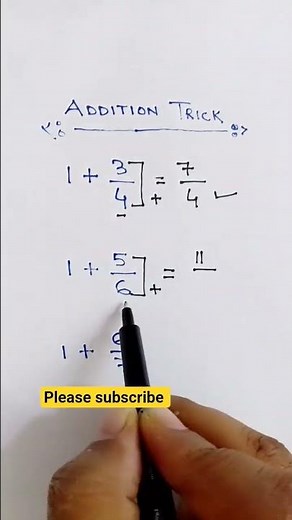 ADDITION TRICK
1 + 3/4 ] + = 7/4 ✓
1 + 5/6 ] + = 11/
1 +
Please subscribe